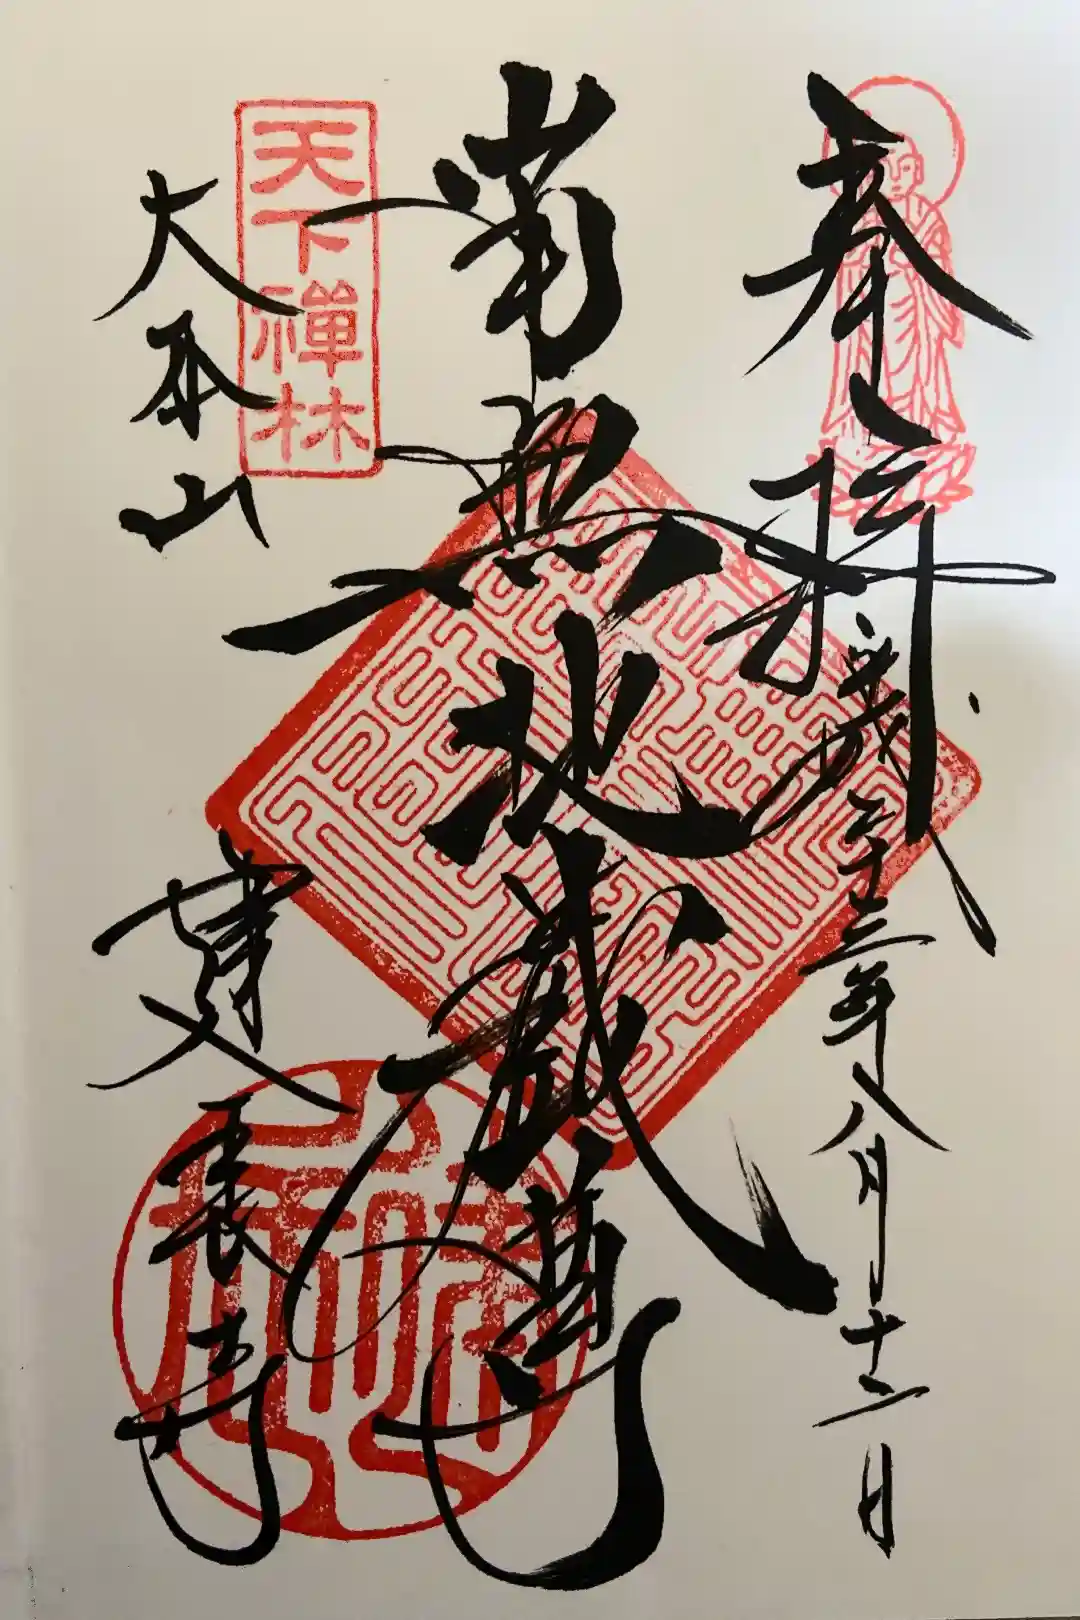 奉拝
平成二十三年八月十二日
南無地蔵尊
天下禅林
大本山
建長寺